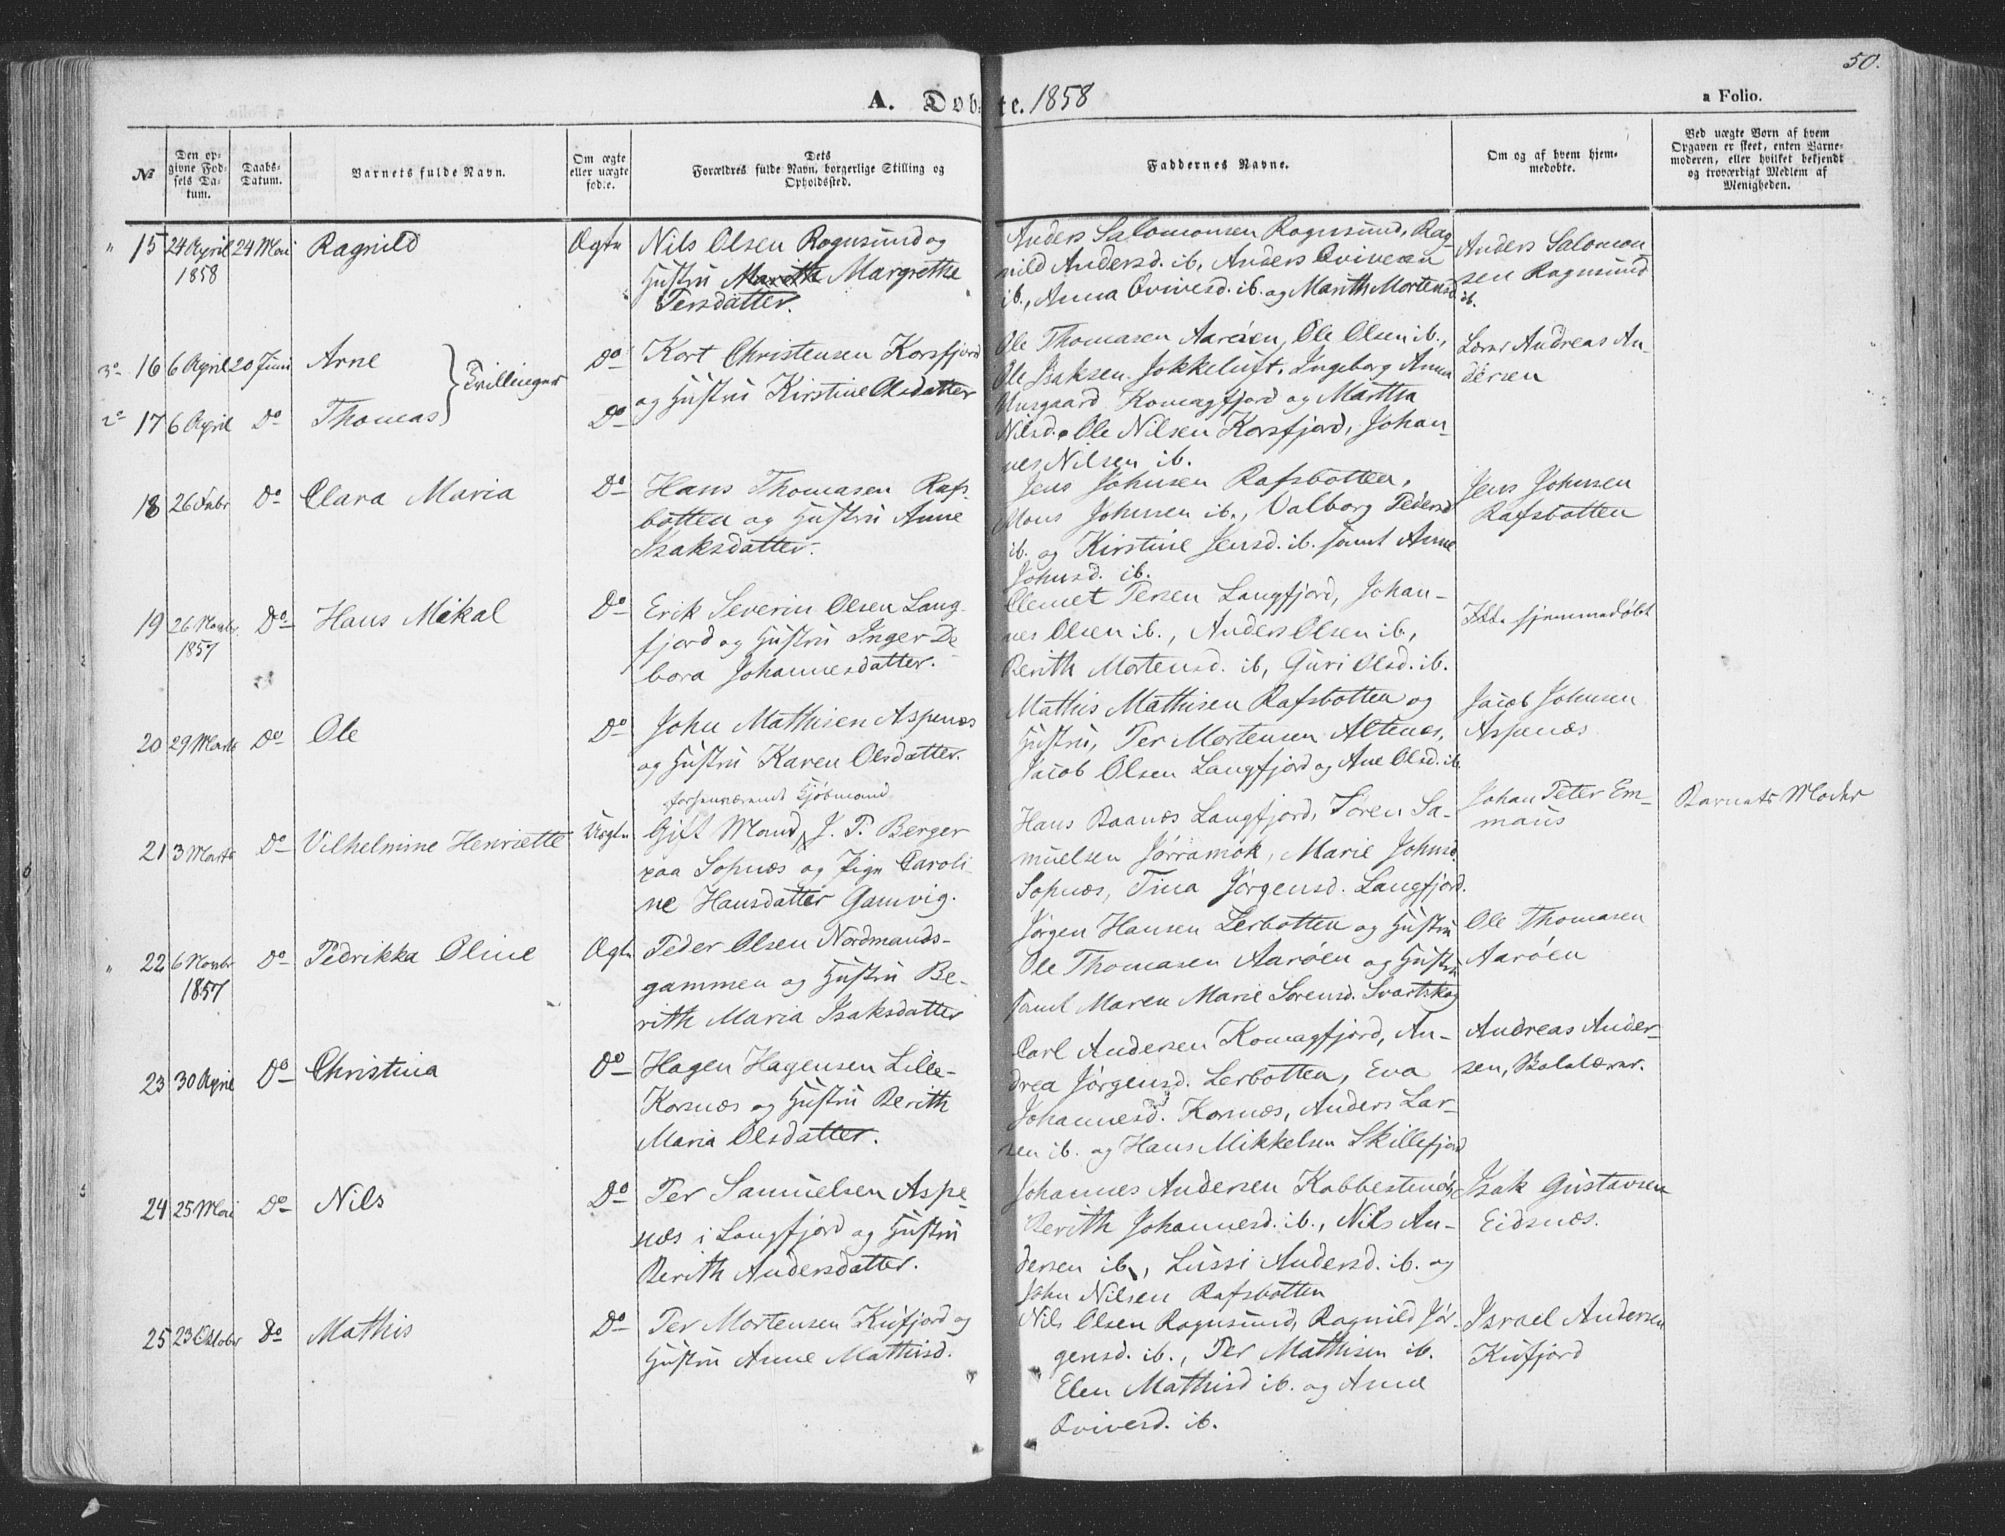 50.
A. Døbte. 1858
a Folio.
No
Den opgivne Fødsels Datum.
Daabs-Datum.
Barnets fulde Navn.
Om ægte eller uægte født.
Dets Forældres fulde Navn, borgerlige Stilling og Opholdssted.
Faddernes Navne.
Om og af hvem hjemmedøbte.
Ved uægte Børn af hvem Opgaven er skeet, enten Barnemoderen, eller hvilket bekjendt og troværdigt Medlem af Menigheden.
" 15 24 April 1858 24 Mai Ragnild Ægte
Nils Olsen Rognsund og
Hustru Marith Margrethe
Persdatter.
Anders Salomonsen Rognsund, Rag-
nild Andersd. ib, Anders Qvivesen
ib., Anna Qvivesd. ib. og Marith Mortensd.
ib.
Anders Salomon
sen Rognsund
3o 16 6 April 20 Juni Arne
Tvillinger
Do
2o 17 6 April Do Thomas Do
Kort Christensen Korsfjord
og Hustru Kirstine Olsdatter
Ole Thomasen Aarøen, Ole Olsen ib.,
Ole Isaksen Jokkeluft. Ingeborg Anna
Komagfjord og Martha
Nilsd. Ole Nilsen Korsfjord, Johan-
nes Nilsen ib.
Lærer Andreas An-
dersen
18 26 Febr Do Clara Maria Do
Hans Thomasen Rafs
botten og Hustru Anne
Isaksdatter.
Jens Johnsen Rafsbotten,
Mons Johnsen ib., Valborg Pedersd
ib. og Kirstine Jensd. ib. samt Anne
Johnsd. ib.
Jens Johnsen
Rafsbotten
19 26 Novbr. 1857 Do Hans Mikal Do
Erik Severin Olsen Lang-
fjord og Hustru Inger De
bora Johannesdatter.
Clemet Persen Langfjord, Johan-
nes Olsen ib., Anders Olsen ib,
Berith Mortensd. ib, Guri Olsd. ib.
Ikke hjemmedøbt
20 29 Marts Do Ole Do
John Mathisen Aspenæs
og Hustru Karen Olsdatter.
Mathis Mathisen Rafsbotten og
Hustru, Per Mortensen Altenæs,
Jacob Olsen Langfjord og Ane Olsd. ib
Jacob Johnsen
Aspenæs
21 3 Marts Do Vilhelmine Henriette Uægte
forhenværende Kjøbmand
Gift Mand, J. P. Berger
paa Sopnæs og Pige Caroli-
ne Hansdatter Gamvig.
Hans Baanæs Langfjord, Søren Sa-
muelsen Jørramok, Marie Johnsd.
Sopnæs, Tina Jørgensd. Langfjord.
Johan Peter Em-
maus
Barnets Moder
" 22 6 Novbr 1857 Do Pedrikka Oline Ægte
Peder Olsen Nordmands-
gammen og Hustru Be-
rith Maria Isaksdatter
Jørgen Hansen Lerbotten og Hustru
Ole Thomasen Aarøen og Hustru
samt Maren Marie Sørensd. Svartskog
Ole Thomasen
Aarøen
23 30 April Do Christina Do
Hagen Hagensen Lille-
Korsnæs og Hustru Berith
Maria Olsdatter.
Carl Andersen Komagfjord, An-
drea Jørgensd. Lerbotten, Eva
Johannesd. Korsnæs, Anders Lar-
sen ib. og Hans Mikkelsen Skillefjord
Andreas Ander-
sen, Skolelærer.
24 25 Mai Do Nils Do
Per Samuelsen Aspe
næs i Langfjord og Hustru
Berith Andersdatter.
Johannes Andersen Kabbestenø,
Berith Johannesd. ib., Nils An-
dersen ib., Lussi Andersd. ib. og
John Nilsen Rafsbotten
Isak Gustavsen
Eidsnæs.
25 23 Oktobr Do Mathis Do
Per Mortensen Kufjord og
Hustru Anne Mathisd.
Nils Olsen Rognsund, Ragnild Jør-
gensd. ib., Per Mathisen ib.
Elen Mathisd ib. og Anne
Qvivesd. ib.
Israel Andersen
Kufjord